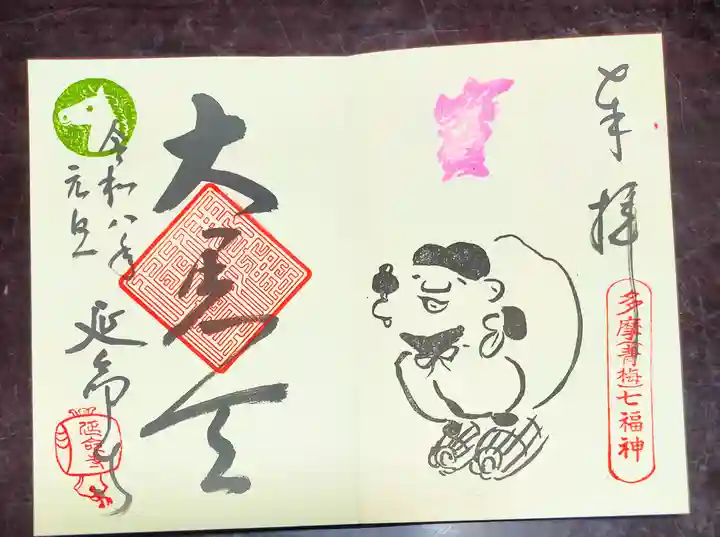 奉拝
多摩青梅七福神
大黒天
令和八年
元旦
延命寺
延命寺